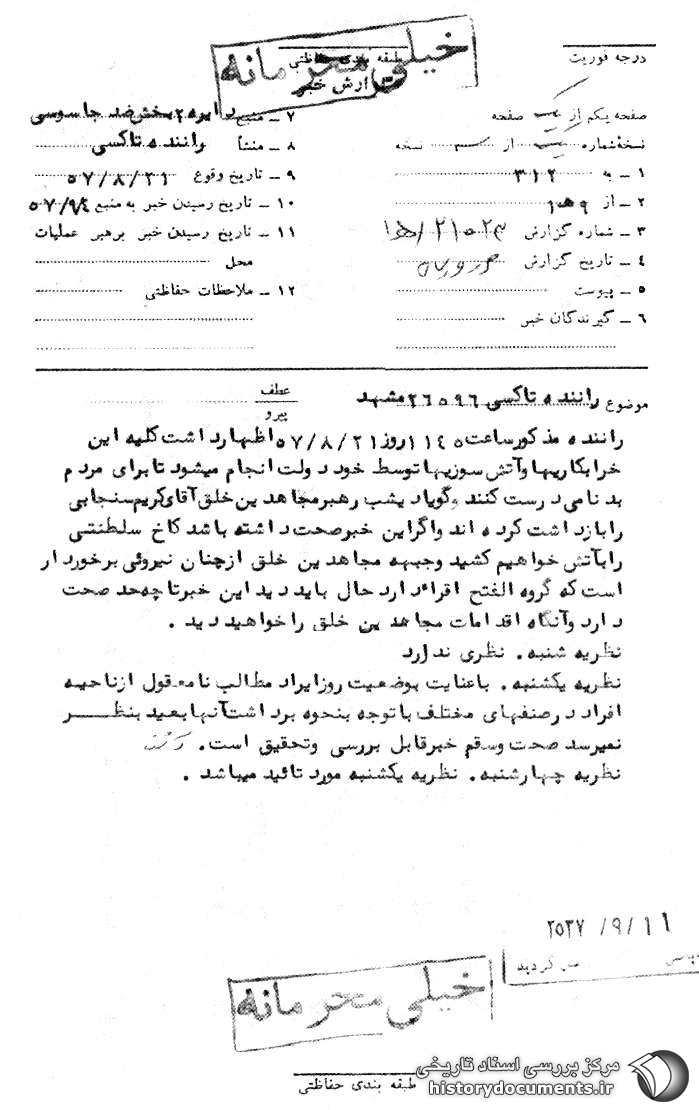 خیلی محرمانه
طبقه بندی حفاظتی
گزارش خبر
درجه فوریت
صفحه یکم از یک صفحه
نسخهٔ شماره یک از سه نسخه
۱ ـ به ۳۱۲
۲ ـ از ۹ه۱
۳ ـ شماره گزارش
۴ ـ تاریخ گزارش
۵ ـ پیوست
۶ ـ گیرندگان خبر
۷ ـ منبع دایره ۲ بخش ضد جاسوسی
۸ ـ منشأ راننده تاکسی
۹ ـ تاریخ وقوع ۵۷/۸/۲۱
۱۰ ـ تاریخ رسیدن خبر به منبع
۱۱ ـ تاریخ رسیدن خبر برهبر عملیات
محل
۱۲ ـ ملاحظات حفاظتی
موضوع راننده تاکسی ۲۶۵۹۶ مشهد
عطف
پیرو
راننده مذکور ساعت ۱۱۴۵ روز ۵۷/۸/۲۱ اظهار داشت کلیه این
خرابکاریها و آتش سوزیها توسط خود دولت انجام میشود تا برای مردم
بدنامی درست کنند و گویا دیشب رهبر مجاهدین خلق آقای کریم سنجابی
را بازداشت کرده اند و اگر این خبر صحت داشته باشد کاخ سلطنتی
را بآتش خواهیم کشید و جبهه مجاهدین خلق از چنان نیروئی برخوردار
است که گروه الفتح اقرار دارد حال باید دید این خبر تا چه حد صحت
دارد و آنگاه اقدامات مجاهدین خلق را خواهید دید .
نظریه شنبه . نظری ندارد
نظریه یکشنبه . با عنایت بوضعیت روز ایراد مطالب نامعقول از ناحیه
افراد در صنفهای مختلف با توجه بنحوه برداشت آنها بعید بنظر
نمیرسد صحت و سقم خبر قابل بررسی و تحقیق است .
نظریه چهارشنبه . نظریه یکشنبه مورد تائید میباشد .
۲۵۳۷ /۹/۱۱
گردید
خیلی محرمانه
طبقه بندی حفاظتی
مرکز بررسی اسناد تاریخی
historydocuments.ir